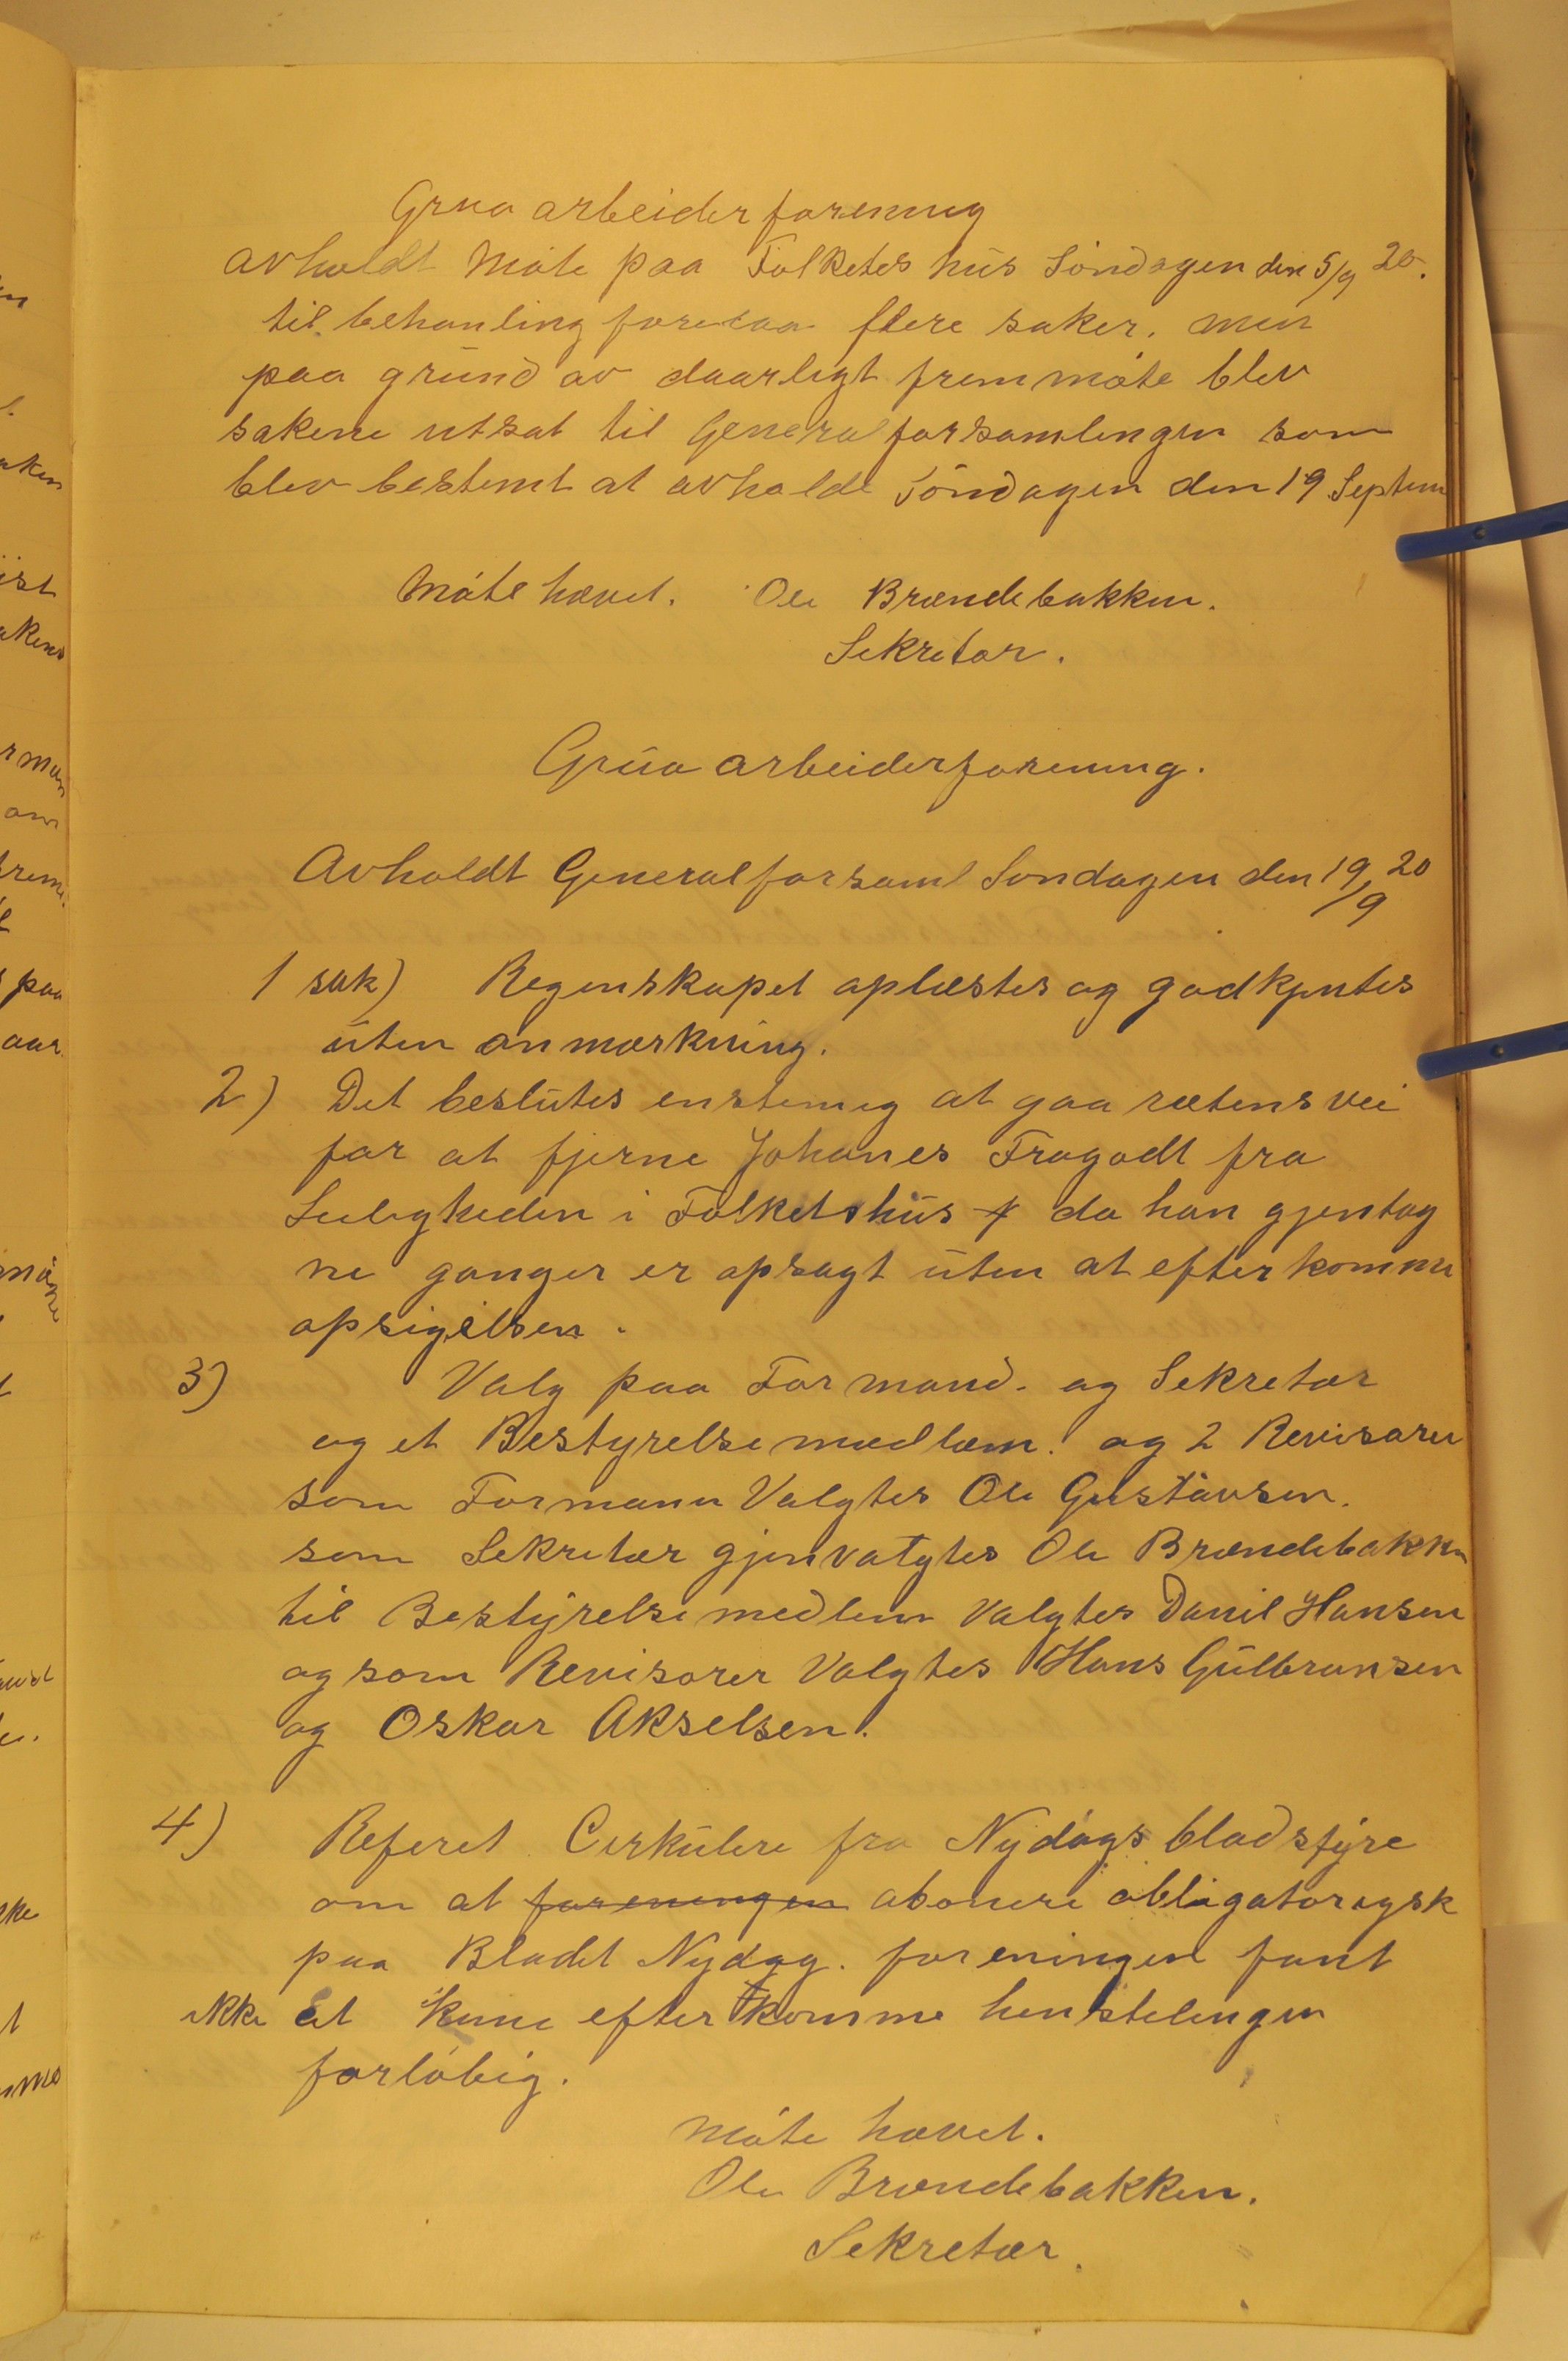 Grua arbeiderforening
avholdt Møte paa Folketes hus Søndagen den 5/9 20.
til behanling forelaa flere saker. men
paa grund av daarligt fremmøte blev
sakene utsat til Generalforsamlingen som
blev bestemt at avholde Søndagen den 19 Septem
Møte hævet. Ole Brændebakken.
Sekretær.
Grua arbeiderforening.
Avholdt Generalforsaml Søndagen den 19/9 20
1 sak) Regenskapet oplæstes og godkjentes
uten anmærkning.
2) Det beslutes enstemig at gaa rettens vei
for at fjerne Johanes Framgodt fra
Leiligheden i Folketshus da han gjentag
ne ganger er opsagt uten at efterkomme
opsigelsen.
3) Valg paa Formand. og Sekretær
og et Bestyrelsemedlem. og 2 Revisorer
som Formann Valgtes Ole Gustavsen.
som Sekretær gjenvalgtes Ole Brændebakken
til Bestyrelsemedlem Valgtes Danil Hansen
og som Revisorer Valgtes Hans Gulbransen
og Oskar Akselsen.
4) Referet Cirkulere fra Nydags bladstyre
om at foreningen abonere obligatorisk
paa Bladet Nydag. foreningen fant
ikke at kune efterkomme henstelingen
forløbig.
Møte hævet.
Ole Brændebakken.
Sekretær.